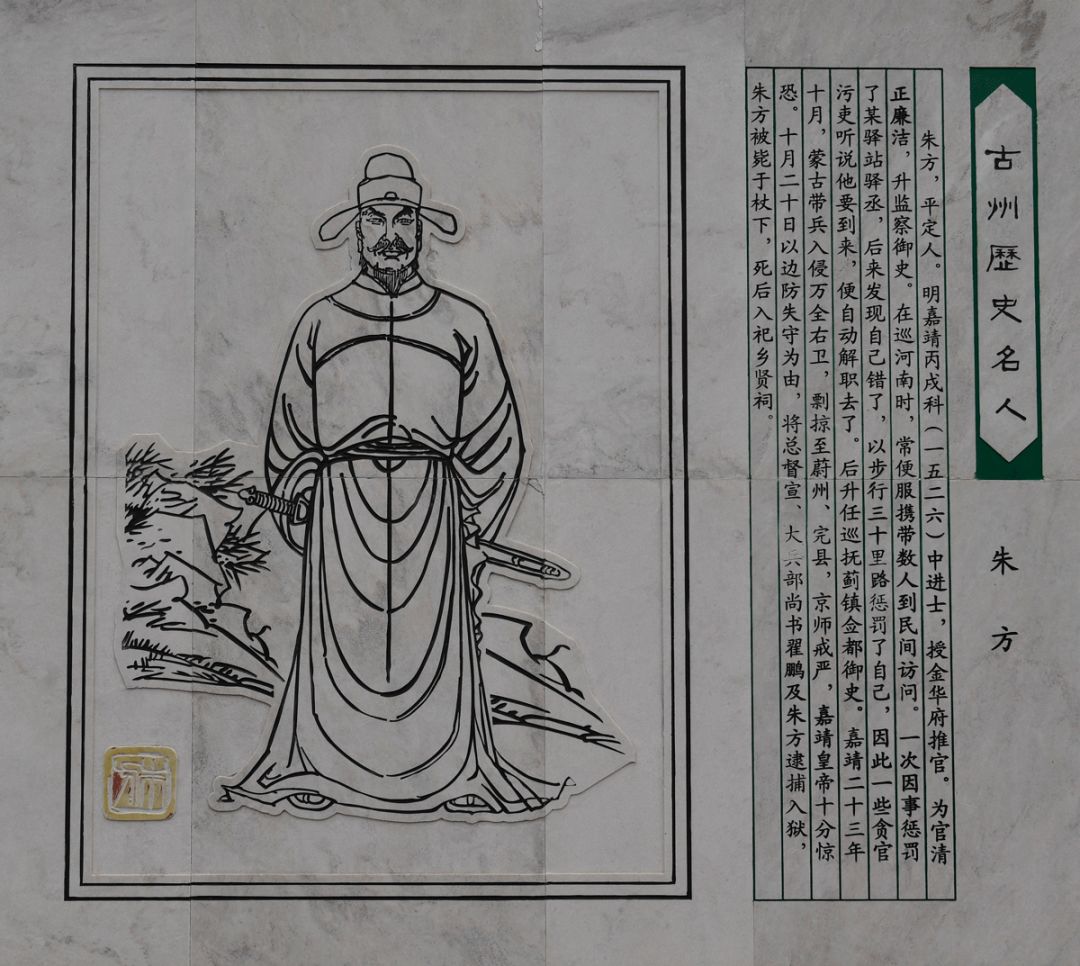 古州歷史名人
朱方
朱方，平定人。明嘉靖丙戌科（一五二六）中进士，授金华府推官。为官清
正廉洁，升监察御史。在巡河南时，常便服携带数人到民间访问。一次因事惩罚
了某驿站驿丞，后来发现自己错了，以步行三十里路惩罚了自己，因此一些贪官
污吏听说他要到来，便自动解职去了。后升任巡抚蓟镇佥都御史。嘉靖二十三年
十月，蒙古带兵入侵万全右卫，剽掠至蔚州、完县，京师戒严，嘉靖皇帝十分惊
恐。十月二十日以边防失守为由，将总督宣、大兵部尚书翟鹏及朱方逮捕入狱，
朱方被毙于杖下，死后入祀乡贤祠。